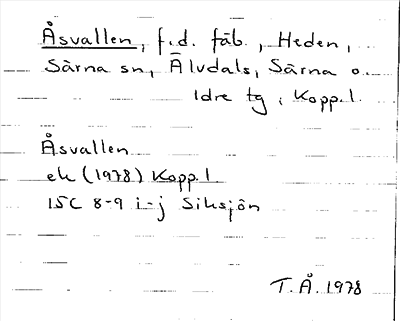 Åsvallen, f.d. fäb., Heden,
Särna sn, Älvdals, Särna o.
Idre tg, Kopp.l.
Åsvallen
ek (1978) Kopp.l
15C 8-9 i-j Siksjön
T.Å. 1978